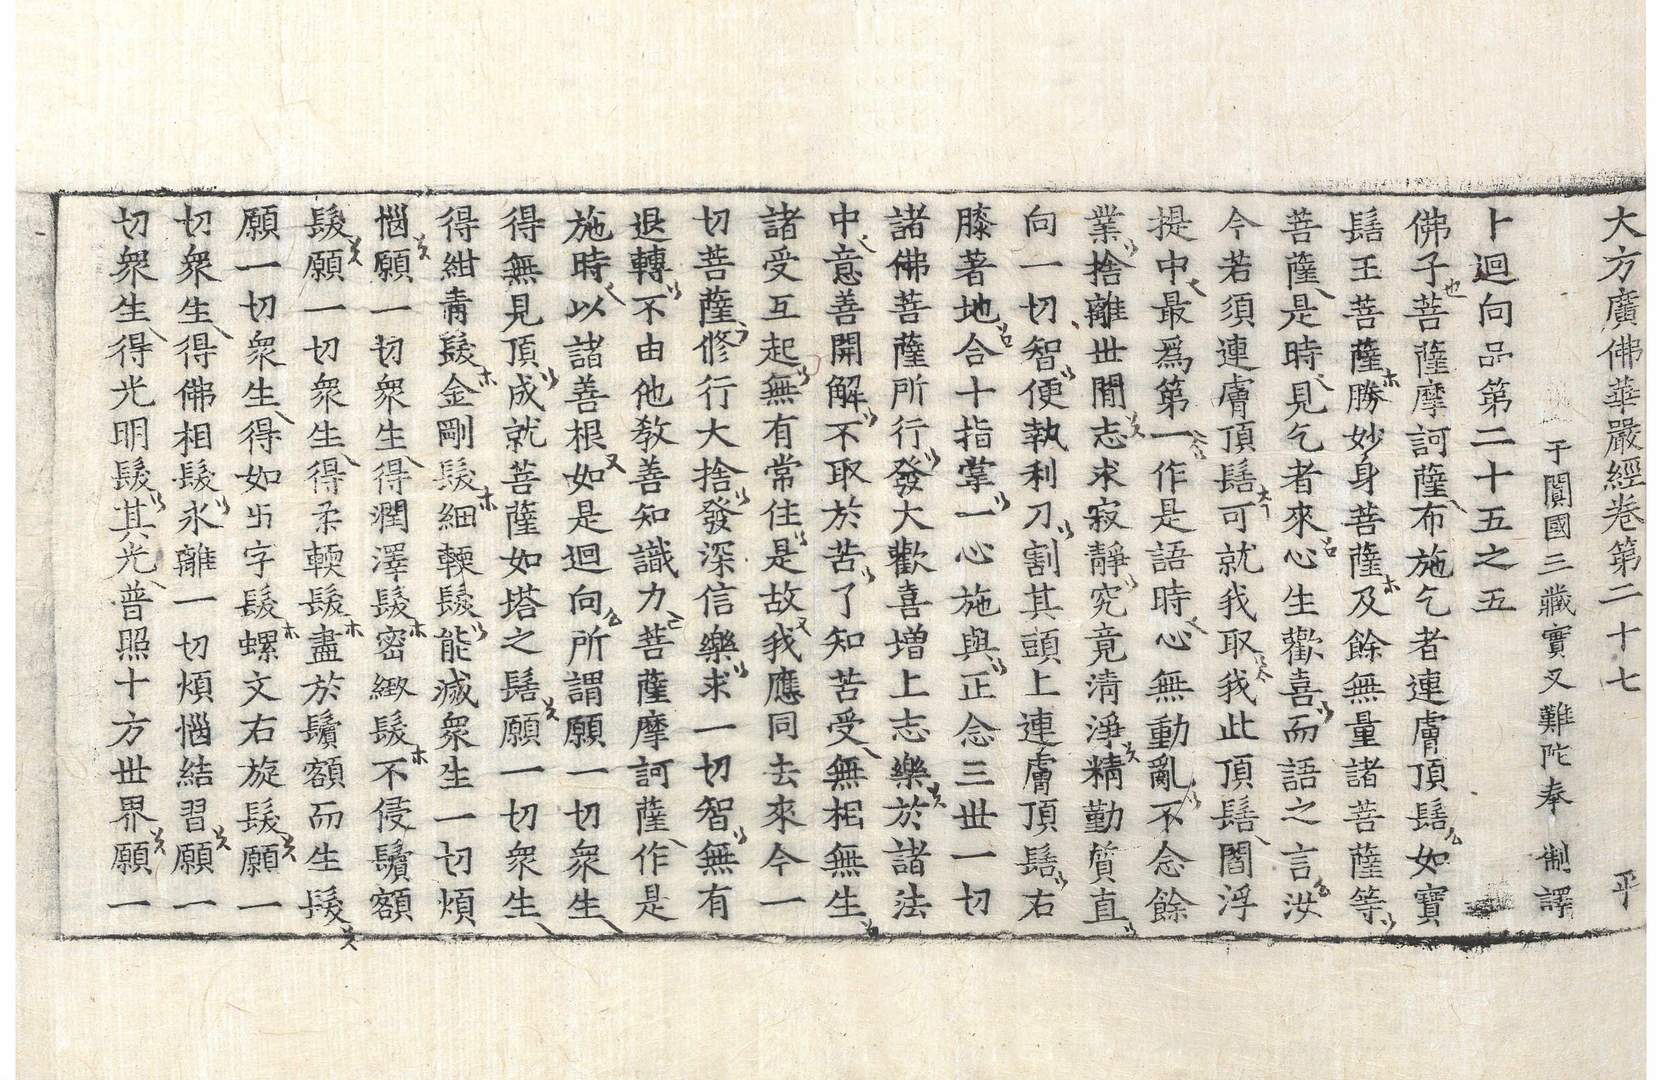 大方廣佛華嚴經卷第二十七 平
于闐國三藏實叉難陀奉 制譯
十迴向品第二十五之五
佛子菩薩摩訶薩布施乞者連膚頂髻如寶
髻王菩薩勝妙身菩薩及餘無量諸菩薩等
菩薩是時見乞者來心生歡喜而語之言汝
今若須連膚頂髻可就我取我此頂髻閻浮
提中最爲第一作是語時心無動亂不念餘
業捨離世間志求寂靜究竟清淨精勤質直
向一切智便執利刀割其頭上連膚頂髻右
膝著地合十指掌一心施與正念三世一切
諸佛菩薩所行發大歡喜增上志樂於諸法
中意善開解不取於苦了知苦受無相無生
諸受互起無有常住是故我應同去來今一
切菩薩修行大捨發深信樂求一切智無有
退轉不由他敎善知識力菩薩摩訶薩作是
施時以諸善根如是迴向所謂願一切衆生
得無見頂成就菩薩如塔之髻願一切衆生
得紺靑髮金剛髮細輭髮能滅衆生一切煩
惱願一切衆生得潤澤髮密緻髮不侵鬢額
髮願一切衆生得柔輭髮盡於鬢額而生髮
願一切衆生得如卐字髮螺文右旋髮願一
切衆生得佛相髮永離一切煩惱結習願一
切衆生得光明髮其光普照十方世界願一